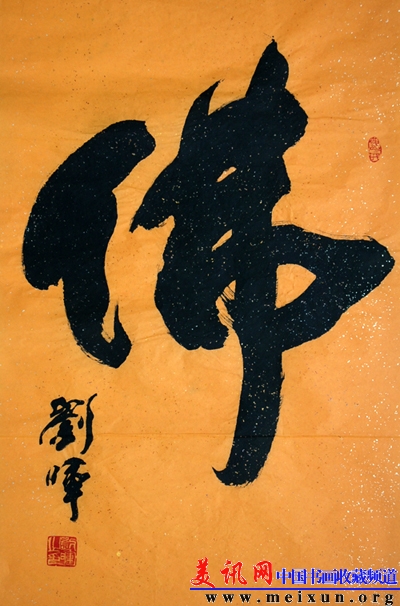 佛
劉暉
美讯网 中国书画收藏频道
www.meixun.org